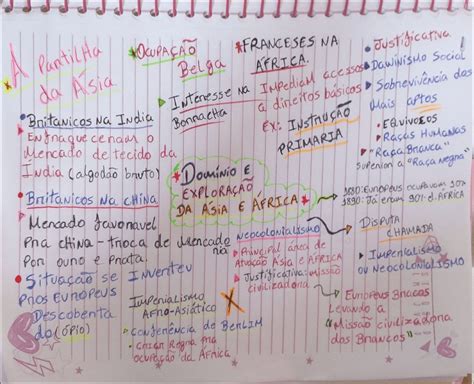 *A Partilha
da Ásia.
• Britanicos na India
• Enfraqueceram o
Mercado de tecido da
India (algodão bruto)
• Britanicos na china
• Mercado favoravel
pra china - troca de mercado
ria
por ouro e prata.
• Situação se inverteu
pros Europeus
Descoberta
do (ópio)
*Ocupação
Belga
Interesse na
Borracha
*Franceses na
África.
Impediam acesso
a direitos básicos
Ex: Instrução
primaria
• Justificativa
• Dawinismo Social
• Sobrevivência dos
mais aptos
• Equivocos
• "Raças Humanas
• "Raça Branca"
Superior a "Raça negra"
*Domínio e
exploração
da Ásia e África*
1880: Europeus ocupavam 10%
1890: Já eram 90% d. África
Neocolonialismo
• Principal área de
atuação Ásia e África
• Justificativa: missão
civilizadora
Disputa
chamada
Imperialismo
ou Neocolonialismo
Imperialismo
Afro-Asiático
• Conferência de Berlim
• Criar Regra pra
ocupação da África
Europeus Brancos
Levando a
"Missão civilizadora
dos Brancos"